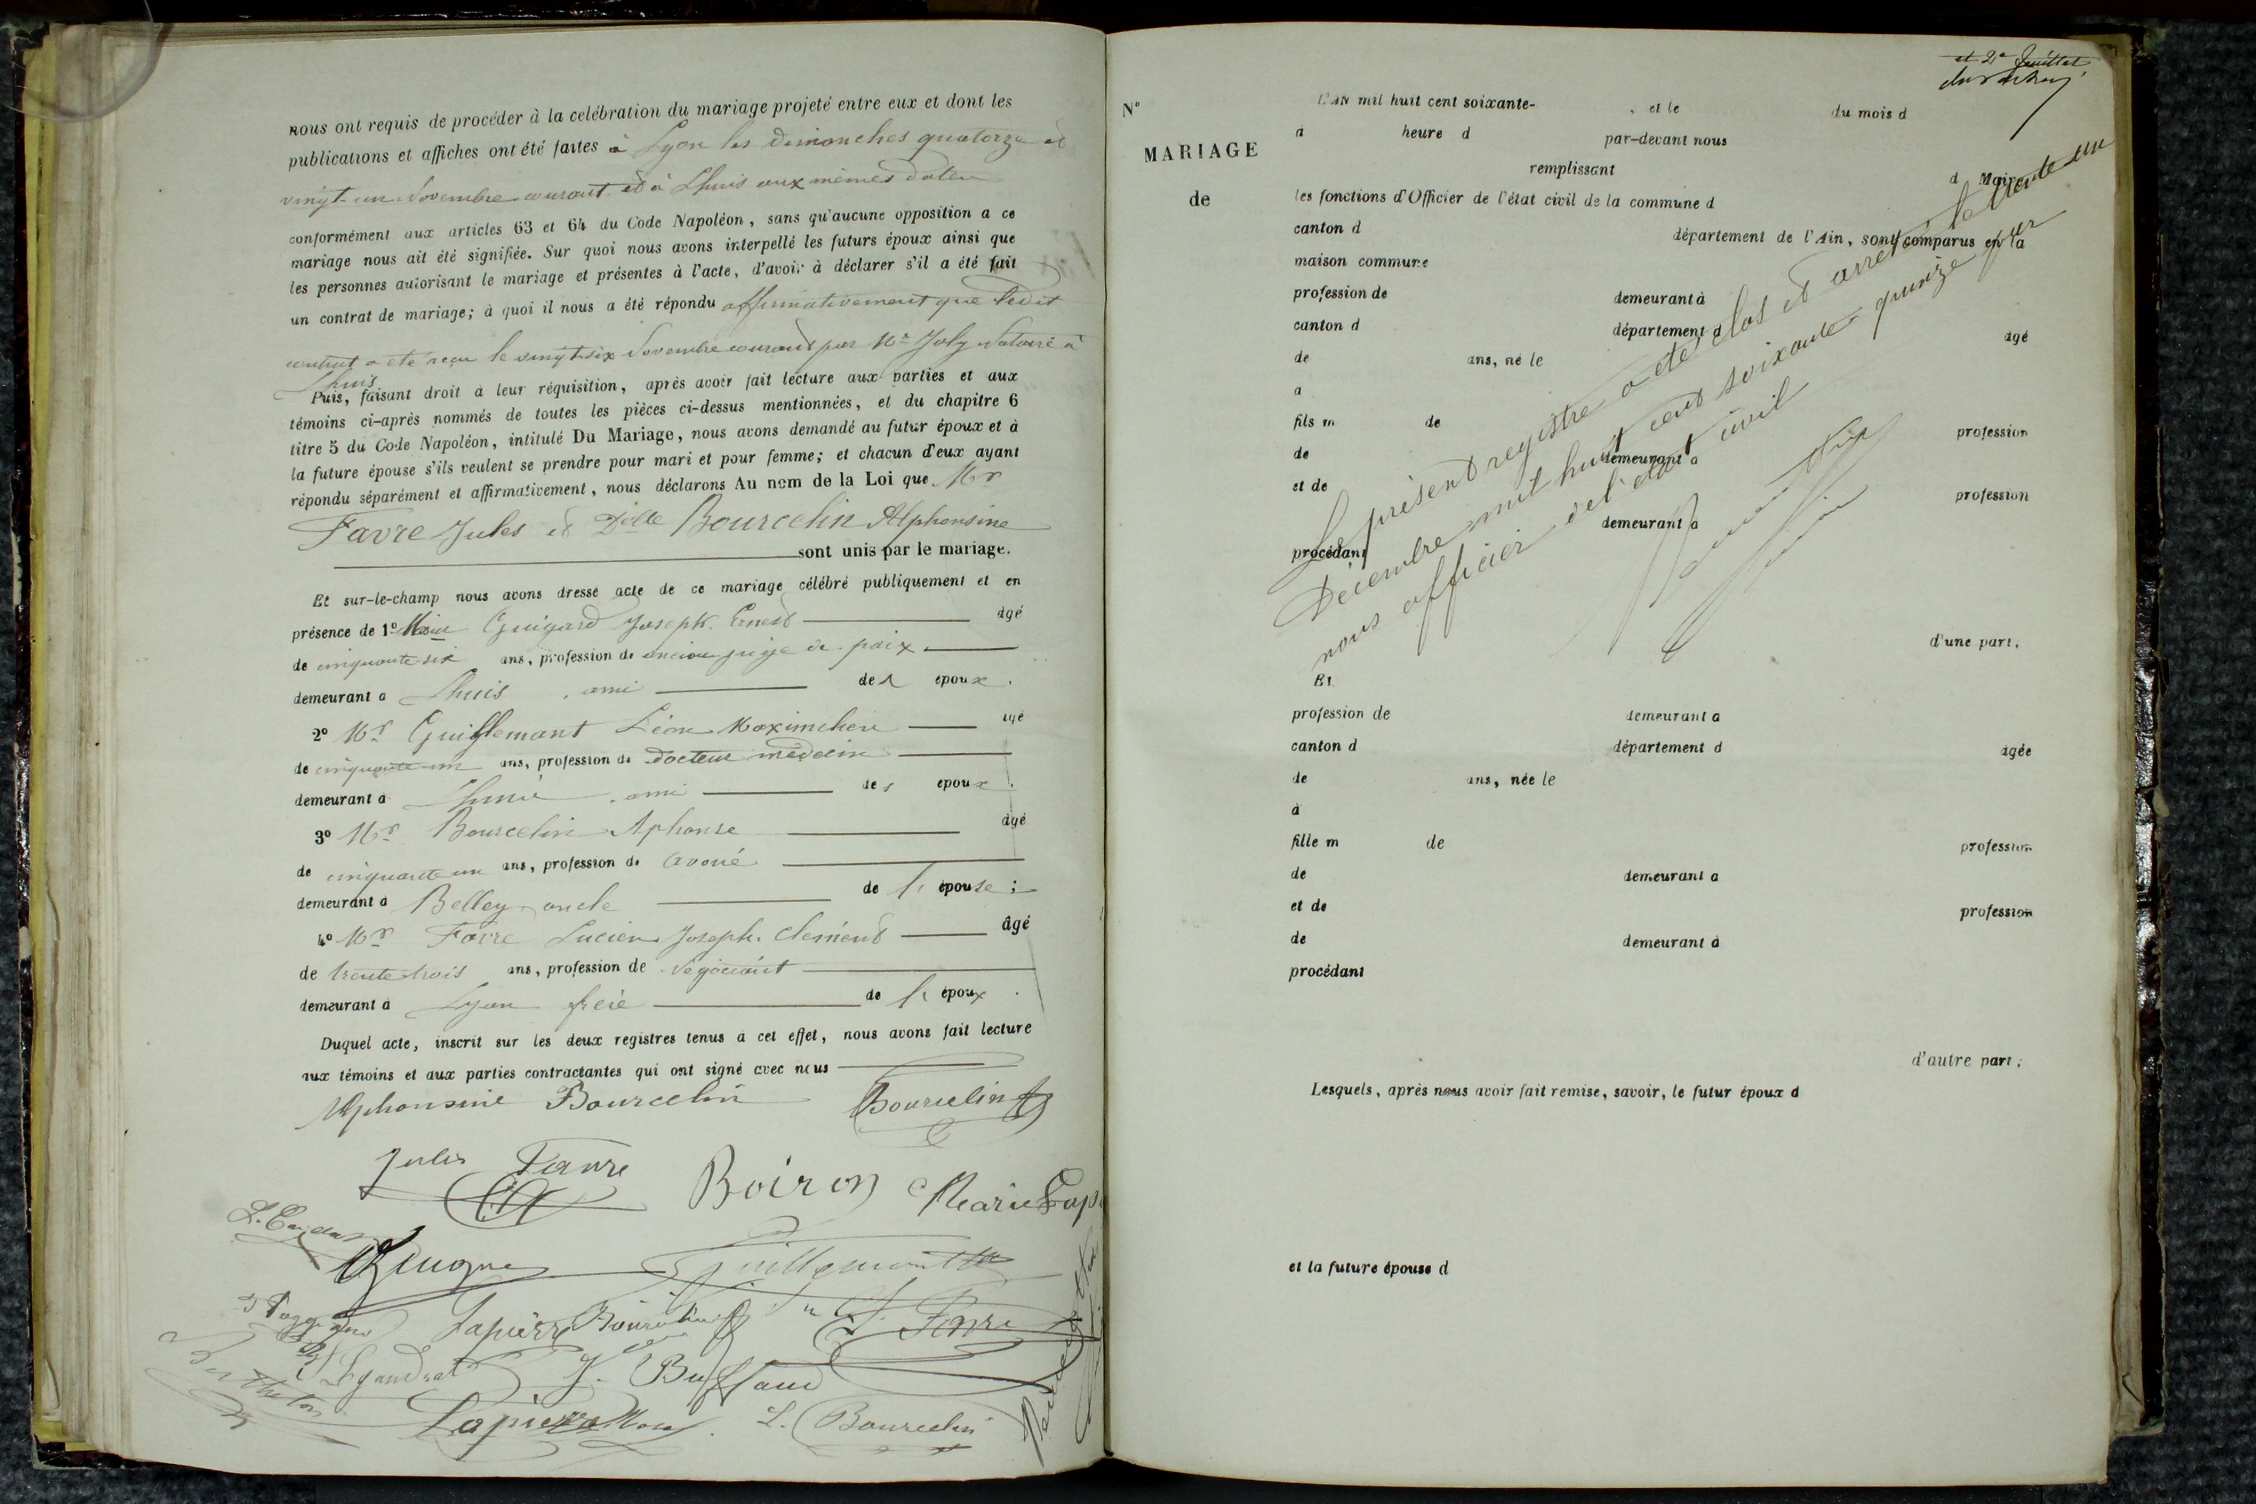 nous ont requis de procéder à la célébration du mariage projeté entre eux et dont les
publications et affiches ont été faites à Lyon les dimanches quatorze et
vingt-un Novembre courant et à Lhuis aux mêmes dates
conformément aux articles 63 et 64 du Code Napoléon, sans qu'aucune opposition à ce
mariage nous ait été signifiée. Sur quoi nous avons interpellé les futurs époux ainsi que
les personnes autorisant le mariage et présentes à l'acte, d'avoir à déclarer s'il a été fait
un contrat de mariage; à quoi il nous a été répondu affirmativement que ledit
contrat a été reçu le vingt-six Novembre courant par Mr Joly Notaire à
Lhuis
Puis, faisant droit à leur réquisition, après avoir fait lecture aux parties et aux
témoins ci-après nommés de toutes les pièces ci-dessus mentionnées, et du chapitre 6
titre 5 du Code Napoléon, intitulé Du Mariage, nous avons demandé au futur époux et à
la future épouse s'ils veulent se prendre pour mari et pour femme; et chacun d'eux ayant
répondu séparément et affirmativement, nous déclarons Au nom de la Loi que Mr
Favre Jules et Dlle Bourcelin Alphonsine
sont unis par le mariage.
Et sur-le-champ nous avons dressé acte de ce mariage célébré publiquement et en
présence de 1º Guigard Joseph Ernest âgé
de cinquante-six ans, profession de ancien juge de paix
demeurant à Lhuis, ami des époux.
2º Mr Guillemont Léon Maximilien âgé
de cinquante-un ans, profession de docteur médecin
demeurant à Lhuis, ami des époux.
3º Mr Bourcelin Alphonse âgé
de cinquante un ans, profession de avoué
demeurant à Belley oncle de l'épouse;
4º Mr Favre Lucien Joseph Clément âgé
de trente-trois ans, profession de Négociant
demeurant à Lyon frère de l'époux.
Duquel acte, inscrit sur les deux registres tenus à cet effet, nous avons fait lecture
aux témoins et aux parties contractantes qui ont signé avec nous
Alphonsine Bourcelin Bourcelin
Jules Favre Boiron Marie
Guillemont
Lapierre Favre
J. Buffaud
Lapierre L. Bourcelin
et 2e feuillet
Nº
MARIAGE
de
L'AN mil huit cent soixante- , et le du mois d
à heure d par-devant nous
remplissant d Maire
les fonctions d'Officier de l'état civil de la commune d
canton d département de l'Ain, sont comparus en la
maison commune
profession de demeurant à
canton d département d âgé
de ans, né le
à
fils m de profession
de demeurant à
et de profession
demeurant à
procédant
Le présent registre a été clos et arrêté le trente un
Décembre mil huit cent soixante quinze par
nous officier de l'état civil
d'une part.
Et
profession de demeurant à
canton d département d âgée
de ans, née le
à
fille m de profession
de demeurant à
et de profession
de demeurant à
procédant
d'autre part;
Lesquels, après nous avoir fait remise, savoir, le futur époux d
et la future épouse d